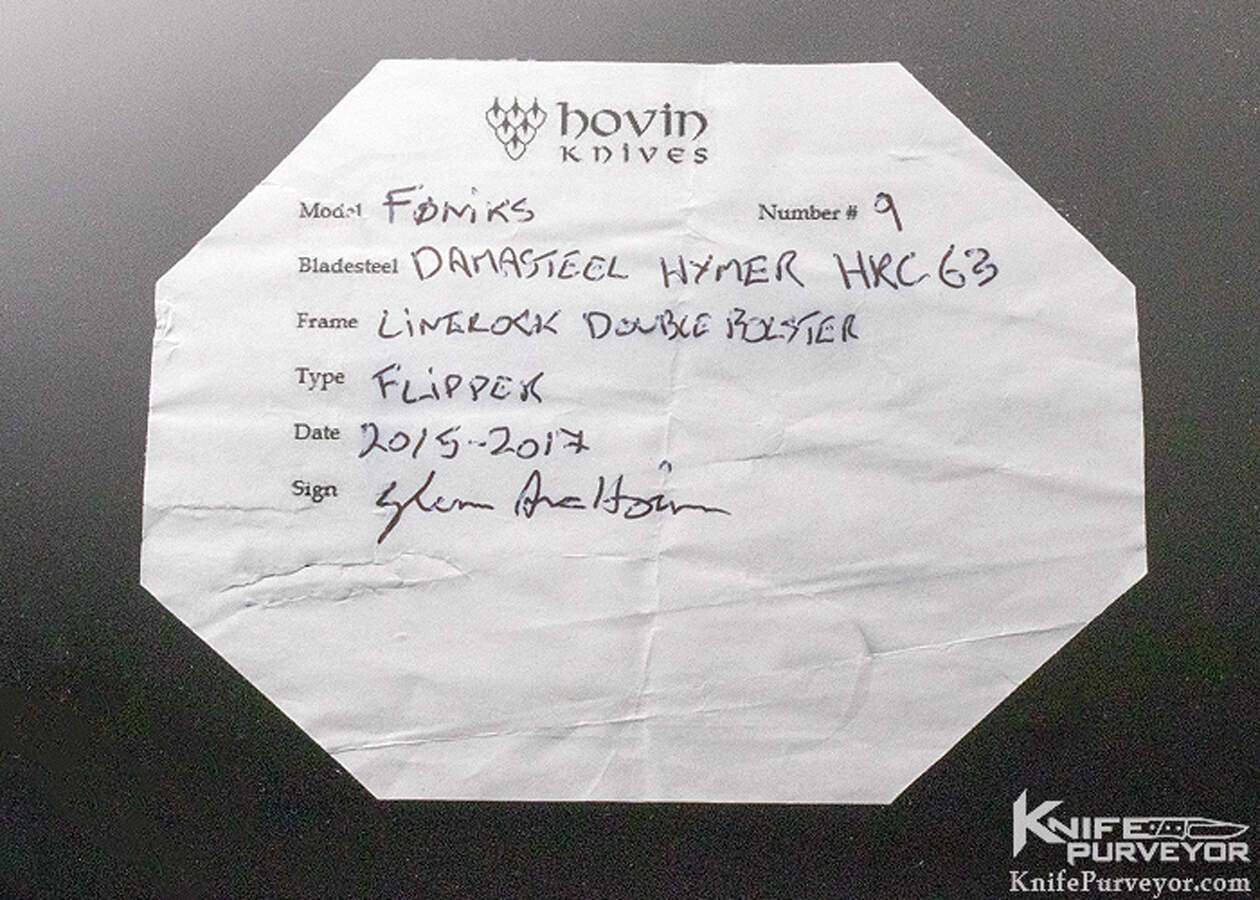 hovin
KNIVES
Model FØNIKS Number # 9
Bladesteel DAMASTEEL HYMER HRC 63
Frame LINERLOCK DOUBLE BOLSTER
Type FLIPPER
Date 2015-2017
Sign Glenn
KNIFE
PURVEYOR
KnifePurveyor.com